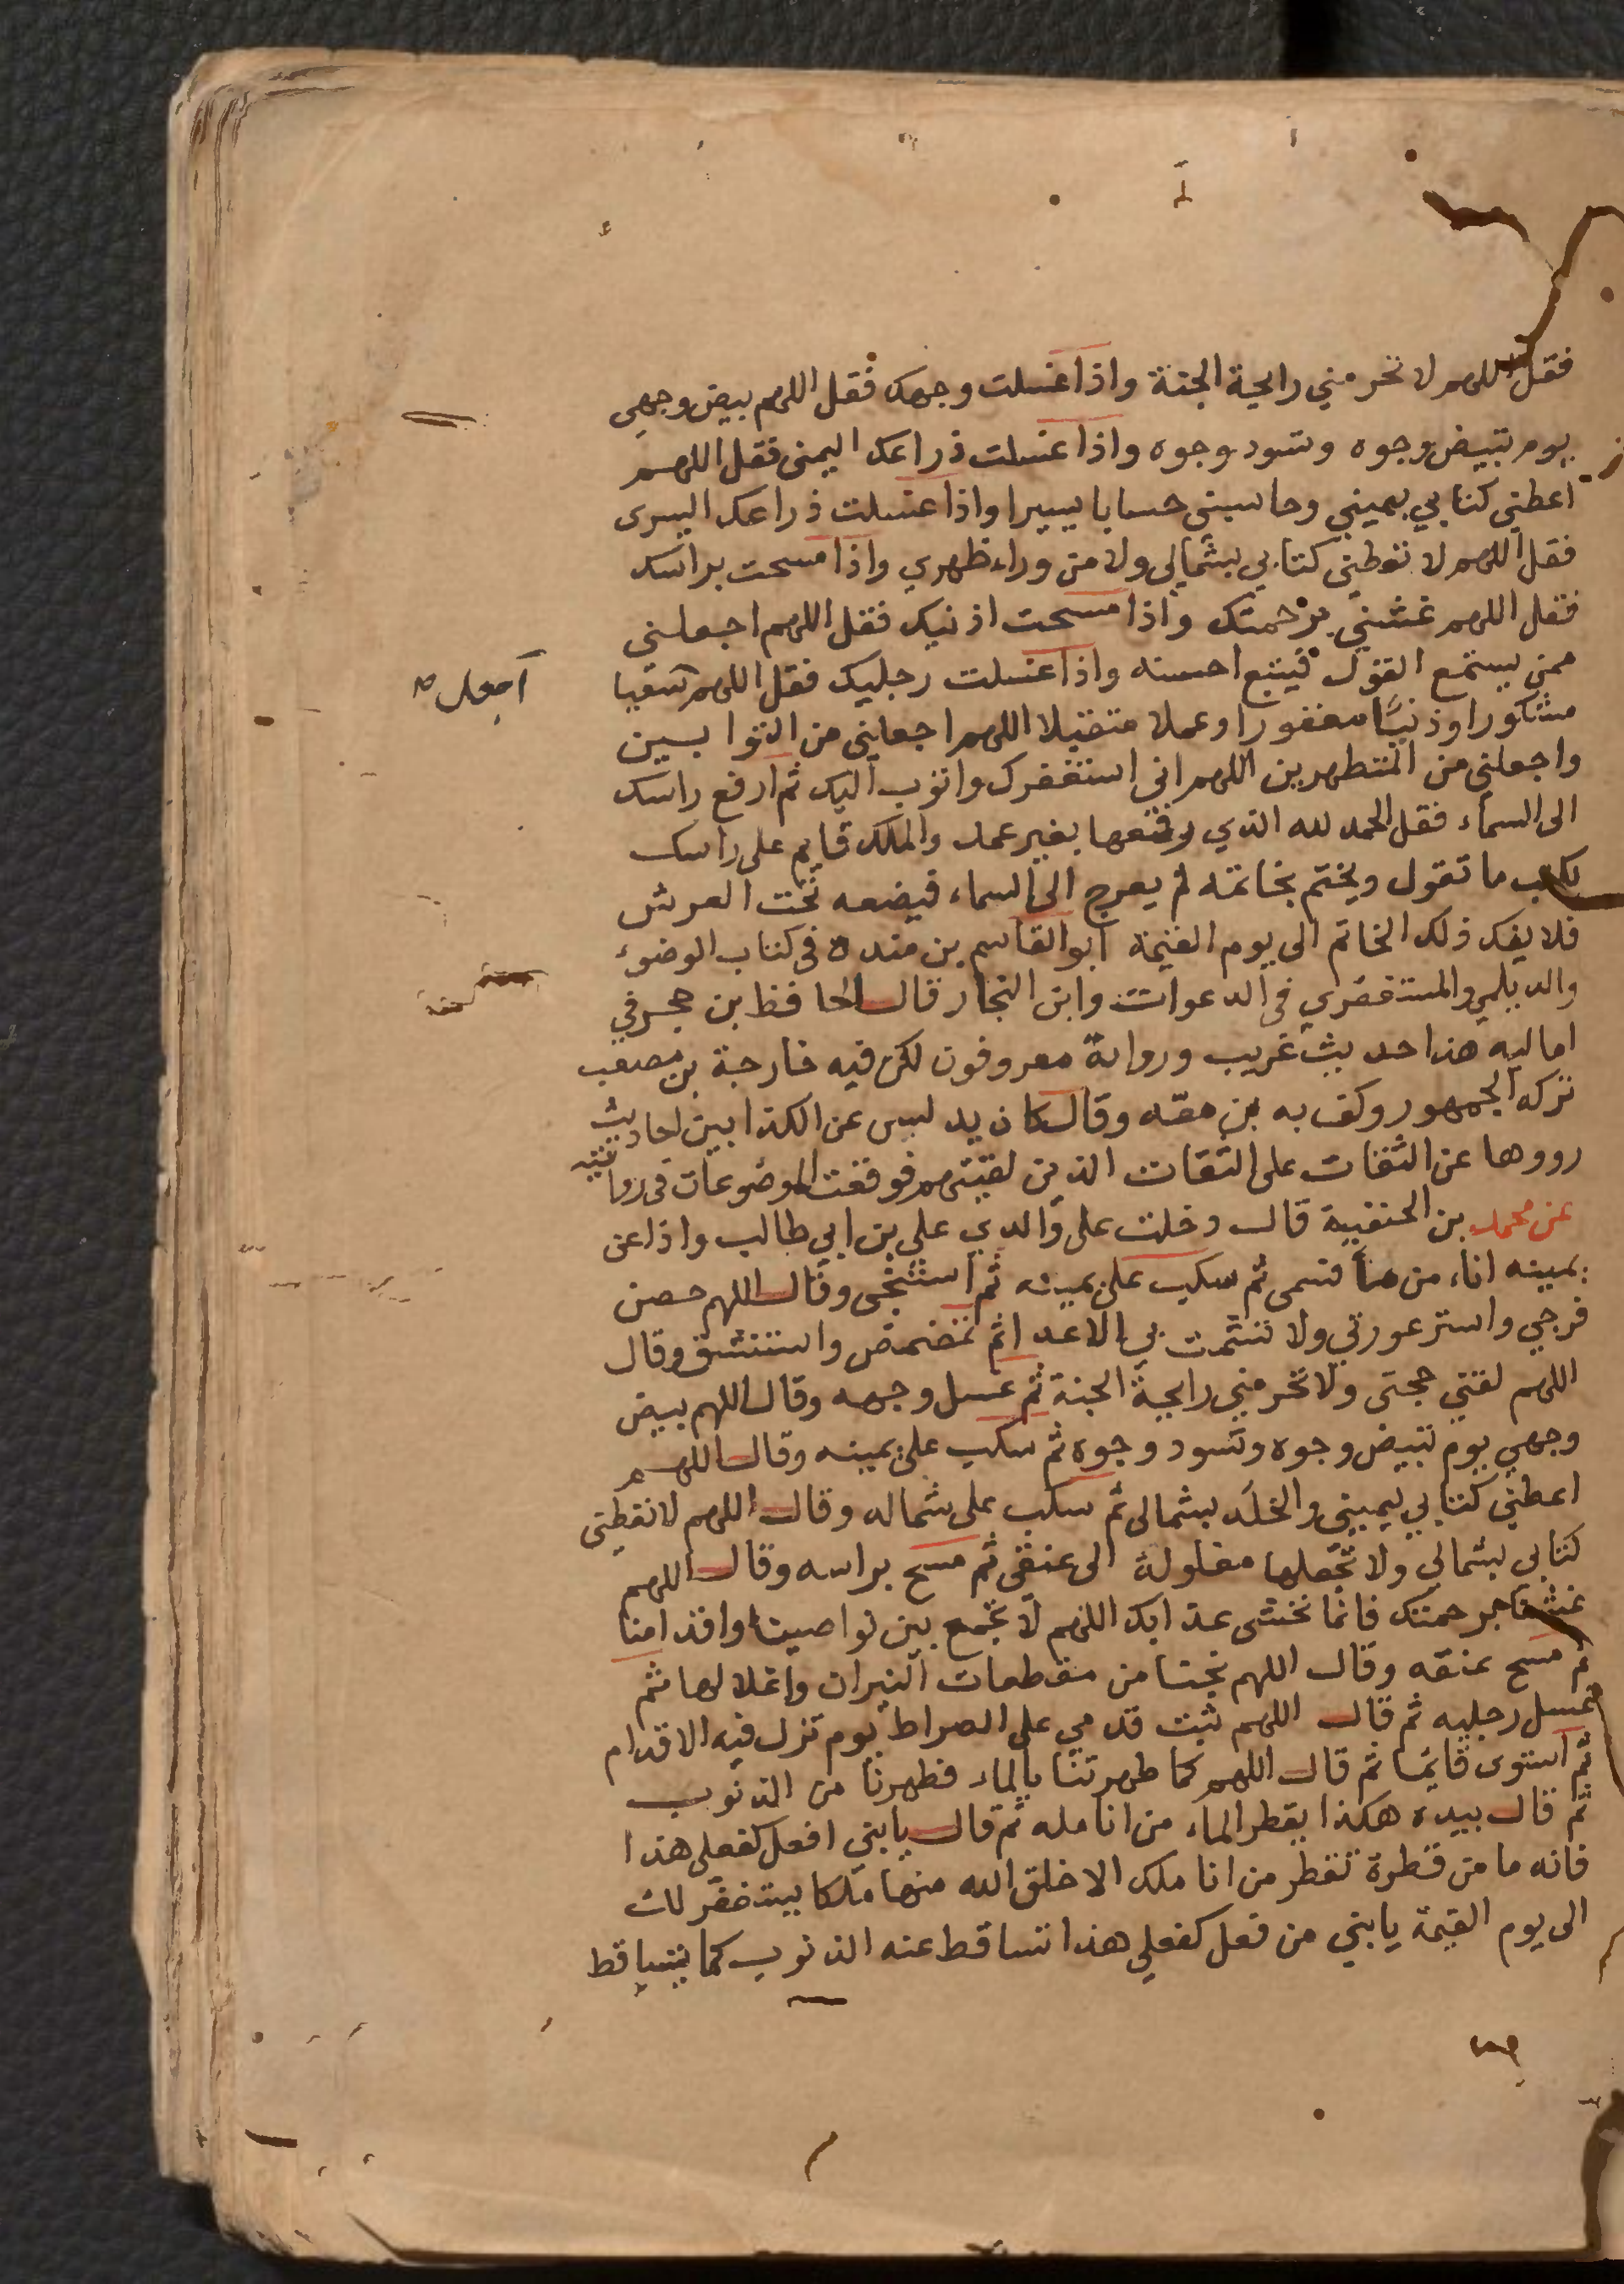 فقل اللهم لا تحرمني رايحة الجنة واذا غسلت وجهك فقل اللهم بيض وجهي
يوم تبيض وجوه وتسود وجوه واذا غسلت ذراعك اليمنى فقل اللهم
اعطني كتابي بيميني وحاسبني حسابا يسيرا واذا غسلت ذراعك اليسرى
فقل اللهم لا تعطني كتابي بشمالي ولا من وراء ظهري واذا مسحت براسك
فقل اللهم غشني برحمتك واذا مسحت اذنيك فقل اللهم اجعلني
ممن يستمع القول فيتبع احسنه واذا غسلت رجليك فقل اللهم سعيا
اجعل
مشكورا وذنبا مغفورا وعملا متقبلا اللهم اجعلني من التوابين
واجعلني من المتطهرين اللهم اني استغفرك واتوب اليك ثم ارفع راسك
الى السماء فقل الحمد لله الذي رفعها بغير عمد والملك قايم على راسك
يكتب ما تقول ويختم بخاتمه ثم يعرج الى السماء فيضعه تحت العرش
فلا يفك ذلك الخاتم الى يوم القيمة ابو القاسم بن منده في كتاب الوضوء
والديلمي والمستغفري في الدعوات وابن النجار قال الحافظ بن حجر في
اماليه هذا حديث غريب ورواته معروفون لكن فيه خارجة بن مصعب
تركه الجمهور وكف به بن معه وقال كان يدلس عن الكذابين احاديث
رووها عن الثقات على الثقات الذين لقيتهم فوقعت الموضوعات في روايته
عن محمد بن الحنفية قال دخلت على والدي علي بن ابي طالب واذا عن
يمينه اناء من ماء فسمى ثم سكب على يمينه ثم استنجى وقال اللهم حصن
فرجي واستر عورتي ولا تشمت بي الاعدا ثم تمضمض واستنشق وقال
اللهم لقني حجتي ولا تحرمني رايحة الجنة ثم غسل وجهه وقال اللهم بيض
وجهي يوم تبيض وجوه وتسود وجوه ثم سكب على يمينه وقال اللهم
اعطني كتابي بيميني والخلد بشمالي ثم سكب على شماله وقال اللهم لا تعطني
كتابي بشمالي ولا تجعلها مغلولة الى عنقي ثم مسح براسه وقال اللهم
غشنا برحمتك فانا نخشى عذابك اللهم لا تجمع بين نواصينا واقدامنا
ثم مسح عنقه وقال اللهم نجنا من مقطعات النيران واغلالها ثم
غسل رجليه ثم قال اللهم ثبت قدمي على الصراط يوم تزل فيه الاقدام
ثم استوى قايما ثم قال اللهم كما طهرتنا بالماء فطهرنا من الذنوب
ثم قال بيده هكذا يقطر الماء من انامله ثم قال يا بني افعل كفعلي هذا
فانه ما من قطرة تقطر من اناملك الا خلق الله منها ملكا يستغفر لك
الى يوم القيمة يا بني من فعل كفعلي هذا تساقط عنه الذنوب كما يتساقط